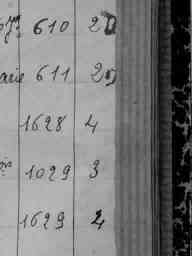 610 20
611 29
1628 4
1029 3
1629 4